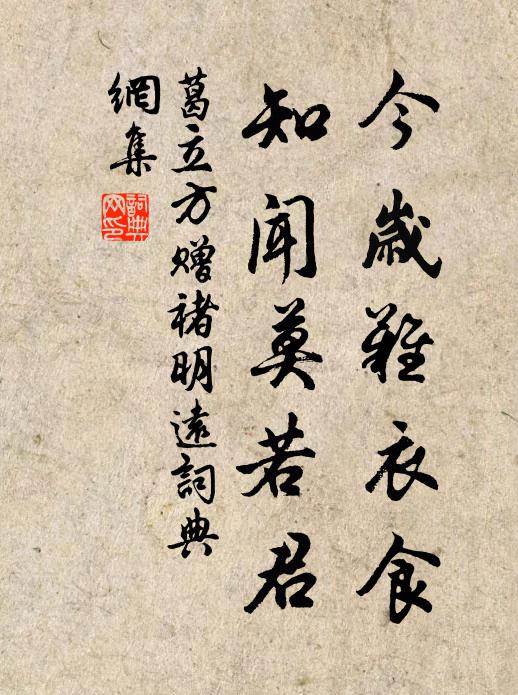 今歲難衣食
知聞莫若君
葛立方贈禇明遠詞典
網集
詞典
網印